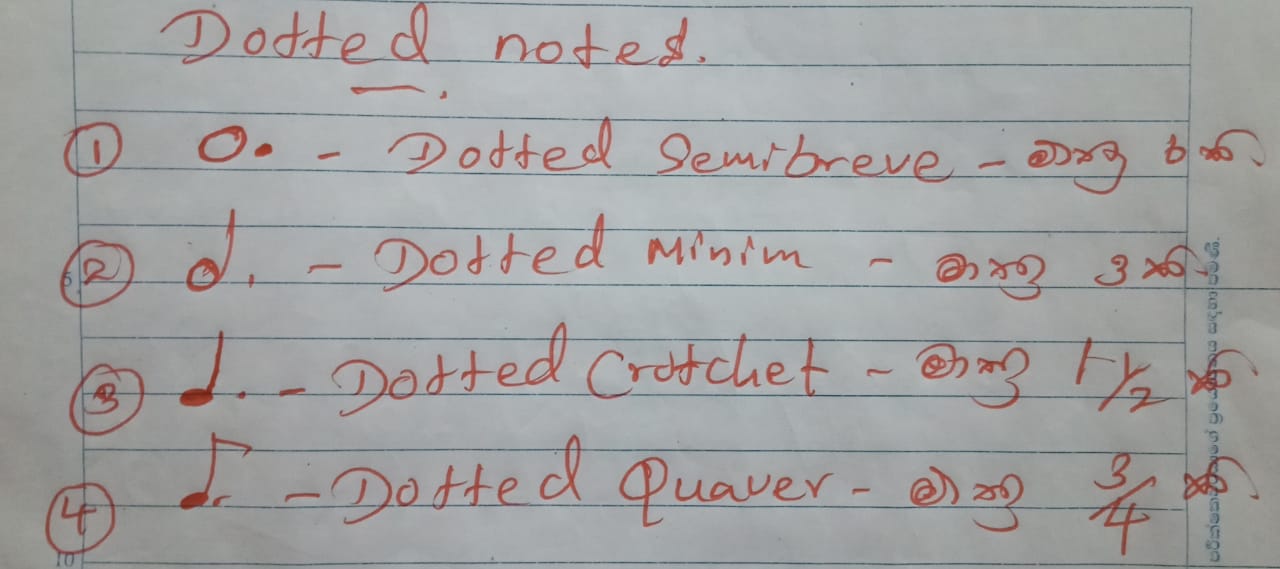 Dotted notes.
① 𝅝. - Dotted Semibreve - මාත්‍රා 6 කි.
② 𝅗𝅥. - Dotted Minim - මාත්‍රා 3 කි.
③ ♩. - Dotted Crotchet - මාත්‍රා 1 1/2 කි
④ ♪. - Dotted Quaver - මාත්‍රා 3/4 කි
5
10